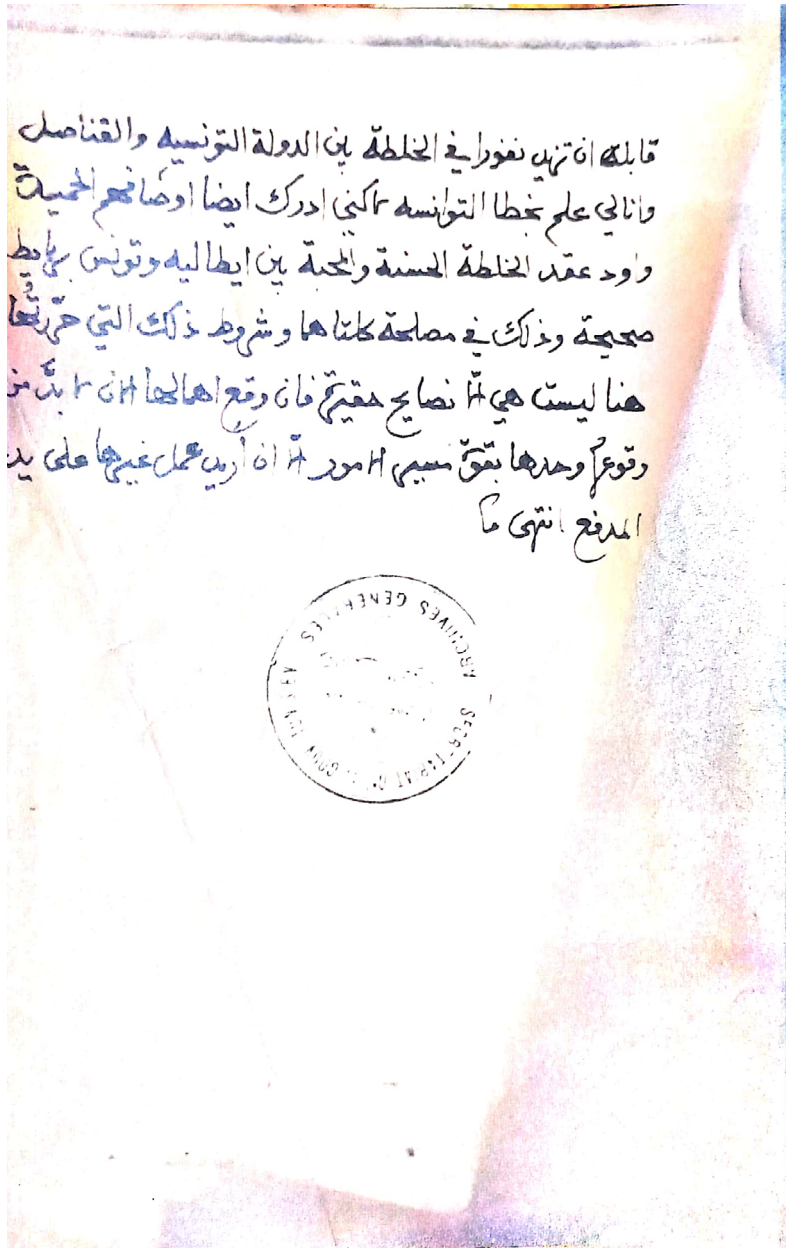 قابلة ان تزيد نفورا في الخلطة بين الدولة التونسيه والقناصل
وانا لي علم بخطا التوانسه لاكني ادرك ايضا اوصافهم الحميدة
واود عقد الخلطة الحسنة والمحبة بين ايطاليه وتونس برابط
صحيحة وذلك في مصلحة كلتاهما وشروط ذلك التي حرّرتُها
هنا ليست هي الّا نصايح حقيرة فان وقع اهمالها الان لا بدّ من
وقوعها وحدها بقوّة مسير الامور الّا ان أريد عمل غيرها على يد
المدفع انتهى
ARCHIVES GENERALES